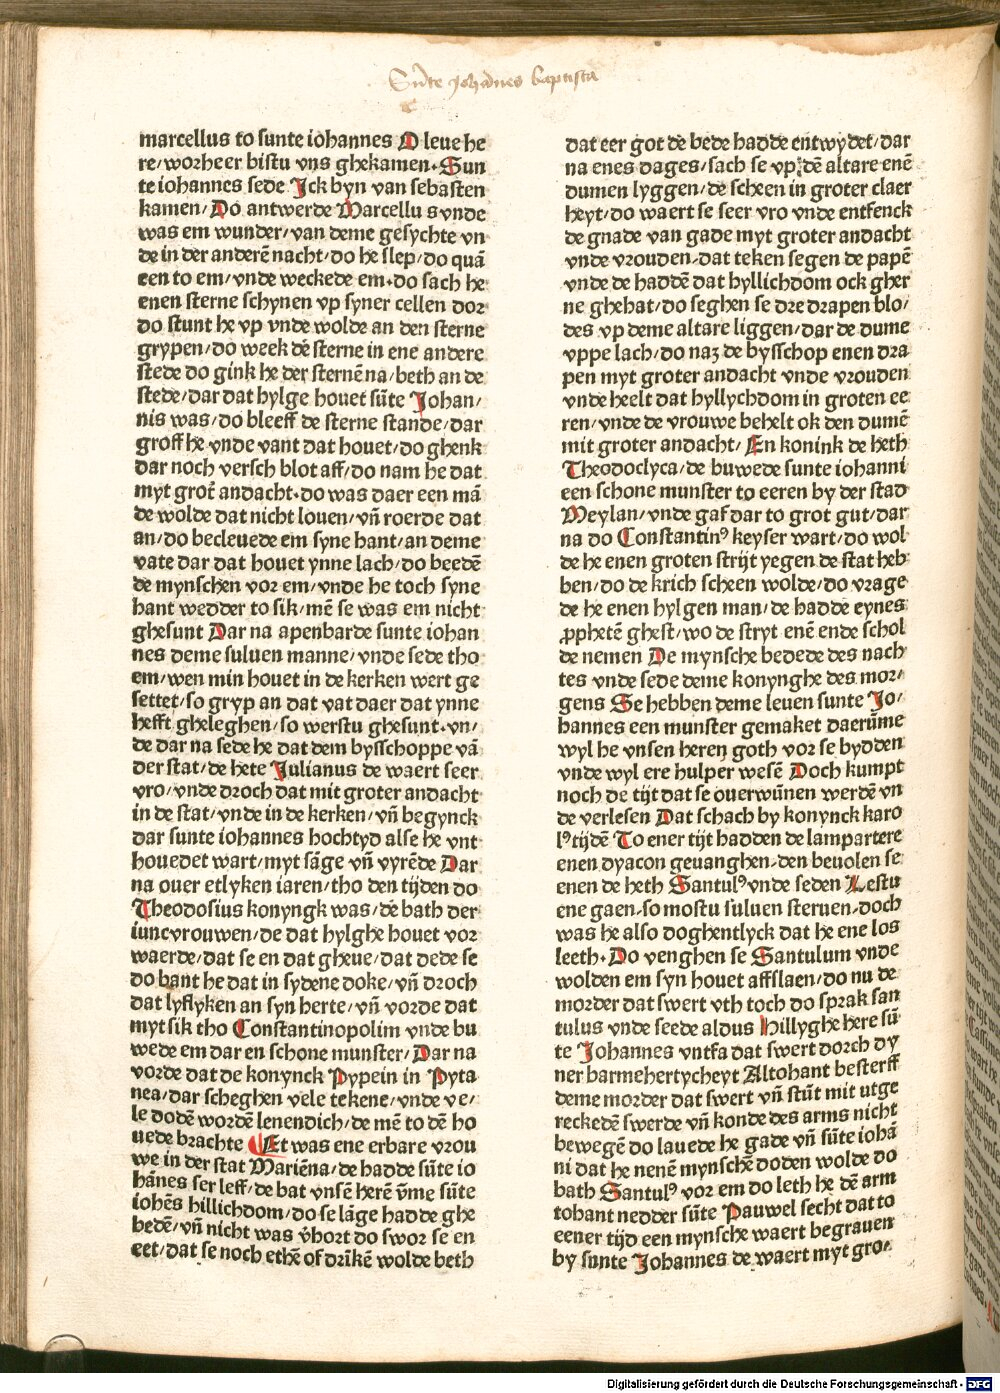 Sūte Johannes baptista
marcellus to sunte iohannes O leue he
re/worheer bistu vns ghekamen·Sun
te iohannes sede Ick byn van sebasten
kamen/Do antwerde Marcellu s vnde
was em wunder/van deme gesychte vn
de in der anderē nacht/do he slep/do quā
een to em/vnde weckede em·do sach he
enen sterne schynen vp syner cellen dor
do stunt he vp vnde wolde an den sterne
grypen/do week dē sterne in ene andere
stede do gink he der sternē na/beth an de
stede/dar dat hylge houet sūte Johan/
nis was/do bleeff de sterne stande/dar
groff he vnde vant dat houet/do ghenk
dar noch versch blot aff/do nam he dat
myt grot̄ andacht·do was daer een mā
de wolde dat nicht louen/vn̄ roerde dat
an/do becleuede em syne hant/an deme
vate dar dat houet ynne lach/do beedē
de mynschen vor em/vnde he toch syne
hant wedder to sik/mē se was em nicht
ghesunt Dar na apenbarde sunte iohan
nes deme suluen manne/vnde sede tho
em/wen min houet in de kerken wert ge
settet/so gryp an dat vat daer dat ynne
hefft gheleghen/so werstu ghesunt·vn/
de dar na sede he dat dem bysschoppe vā
der stat/de hete Julianus de waert seer
vro/vnde droch dat mit groter andacht
in de stat/vnde in de kerken/vn̄ begynck
dar sunte iohannes hochtyd alse he vnt
houedet wart/myt sāge vn̄ vyrēde Dar
na ouer etlyken iaren/tho den tijden do
Theodosius konyngk was/dē bath der
iuncvrouwen/de dat hylghe houet vor
waerde/dat se en dat gheue/dat dede se
do bant he dat in sydene doke/vn̄ droch
dat lyflyken an syn herte/vn̄ vorde dat
myt sik tho Constantinopolim vnde bu
wede em dar en schone munster/Dar na
vorde dat de konynck Pypein in Pyta
nea/dar scheghen vele tekene/vnde ve/
le dodē wordē lenendich/de mē to dē ho
uede brachte Et was ene erbare vrou
we in der stat Mariēna/de hadde sūte io
hānes ser leff/de bat vnsē herē v̄me sūte
iohēs hillichdom/do se lāge hadde ghe
bedē/vn̄ nicht was v̄hort do swor se en
eet/dat se noch ethē of drīkē wolde beth
dat eer got de bede hadde entwydet/dar
na enes dages/sach se vp dē altare enē
dumen lyggen/de scheen in groter claer
heyt/do waert se seer vro vnde entfenck
de gnade van gade myt groter andacht
vnde vrouden·dat teken segen de papē
vnde de haddē dat hyllichdom ock gher
ne ghehat/do seghen se dre drapen blo/
des vp deme altare liggen/dar de dume
vppe lach/do naz de bysschop enen dra
pen myt groter andacht vnde vrouden
vnde heelt dat hyllychdom in groten ee
ren/vnde de vrouwe behelt ok den dumē
mit groter andacht/En konink de heth
Theodoclyca/de buwede sunte iohanni
een schone munster to eeren by der stad
Meylan/vnde gaf dar to grot gut/dar
na do Constantinꝰ keyser wart/do wol
de he enen groten strijt yegen de stat heb
ben/do de krich scheen wolde/do vrage
de he enen hylgen man/de hadde eynes
ꝓphetē ghest/wo de stryt enē ende schol
de nemen De mynsche bedede des nach
tes vnde sede deme konynghe des mor/
gens Se hebben deme leuen sunte Jo/
hannes een munster gemaket daerūme
wyl he vnsen heren goth vor se bydden
vnde wyl ere hulper wesē Doch kumpt
noch de tijt dat se ouerwūnen werdē vn
de verlesen Dat schach by konynck karo
lꝰ tijdē To ener tijt hadden de lampartere
enen dyacon geuanghen·den beuolen se
enen de heth Santulꝰ vnde seden Lestu
ene gaen·so mostu suluen steruen·doch
was he also doghentlyck dat he ene los
leeth·Do venghen se Santulum vnde
wolden em syn houet affslaen/do nu de
morder dat swert vth toch do sprak san
tulus vnde seede aldus Hillyghe here sū
te Johannes vntfa dat swert dorch dy
ner barmehertycheyt Altohant besterff
deme morder dat swert vn̄ stūt mit utge
reckedē swerde vn̄ konde des arms nicht
bewegē do lauede he gade vn̄ sūte iohā
ni dat he nenē mynschē doden wolde do
bath Santulꝰ vor em do leth he dē arm
tohant nedder sūte Pauwel secht dat to
eener tijd een mynsche waert begrauen
by sunte Johannes de waert myt gro/
Digitalisierung gefördert durch die Deutsche Forschungsgemeinschaft - DFG